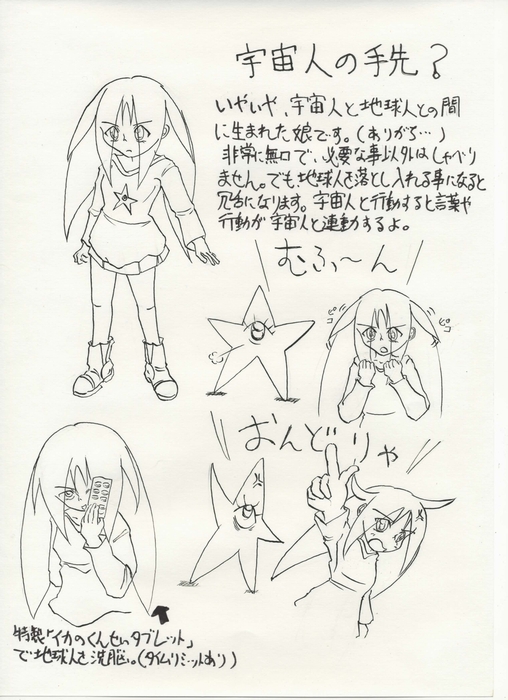 宇宙人の手先?
いやいや、宇宙人と地球人との間
に生まれた娘です。(ありがち…)
非常に無口で、必要な事以外はしゃべり
ません。でも地球人を落とし入れる事になると
冗舌になります。宇宙人と行動すると言葉や
行動が宇宙人と連動するよ。
むふ〜ん
ピコ
ピコ
おんどりゃ
特製「イカのくんせいタブレット」
で地球人を洗脳。(タイムリミットあり)